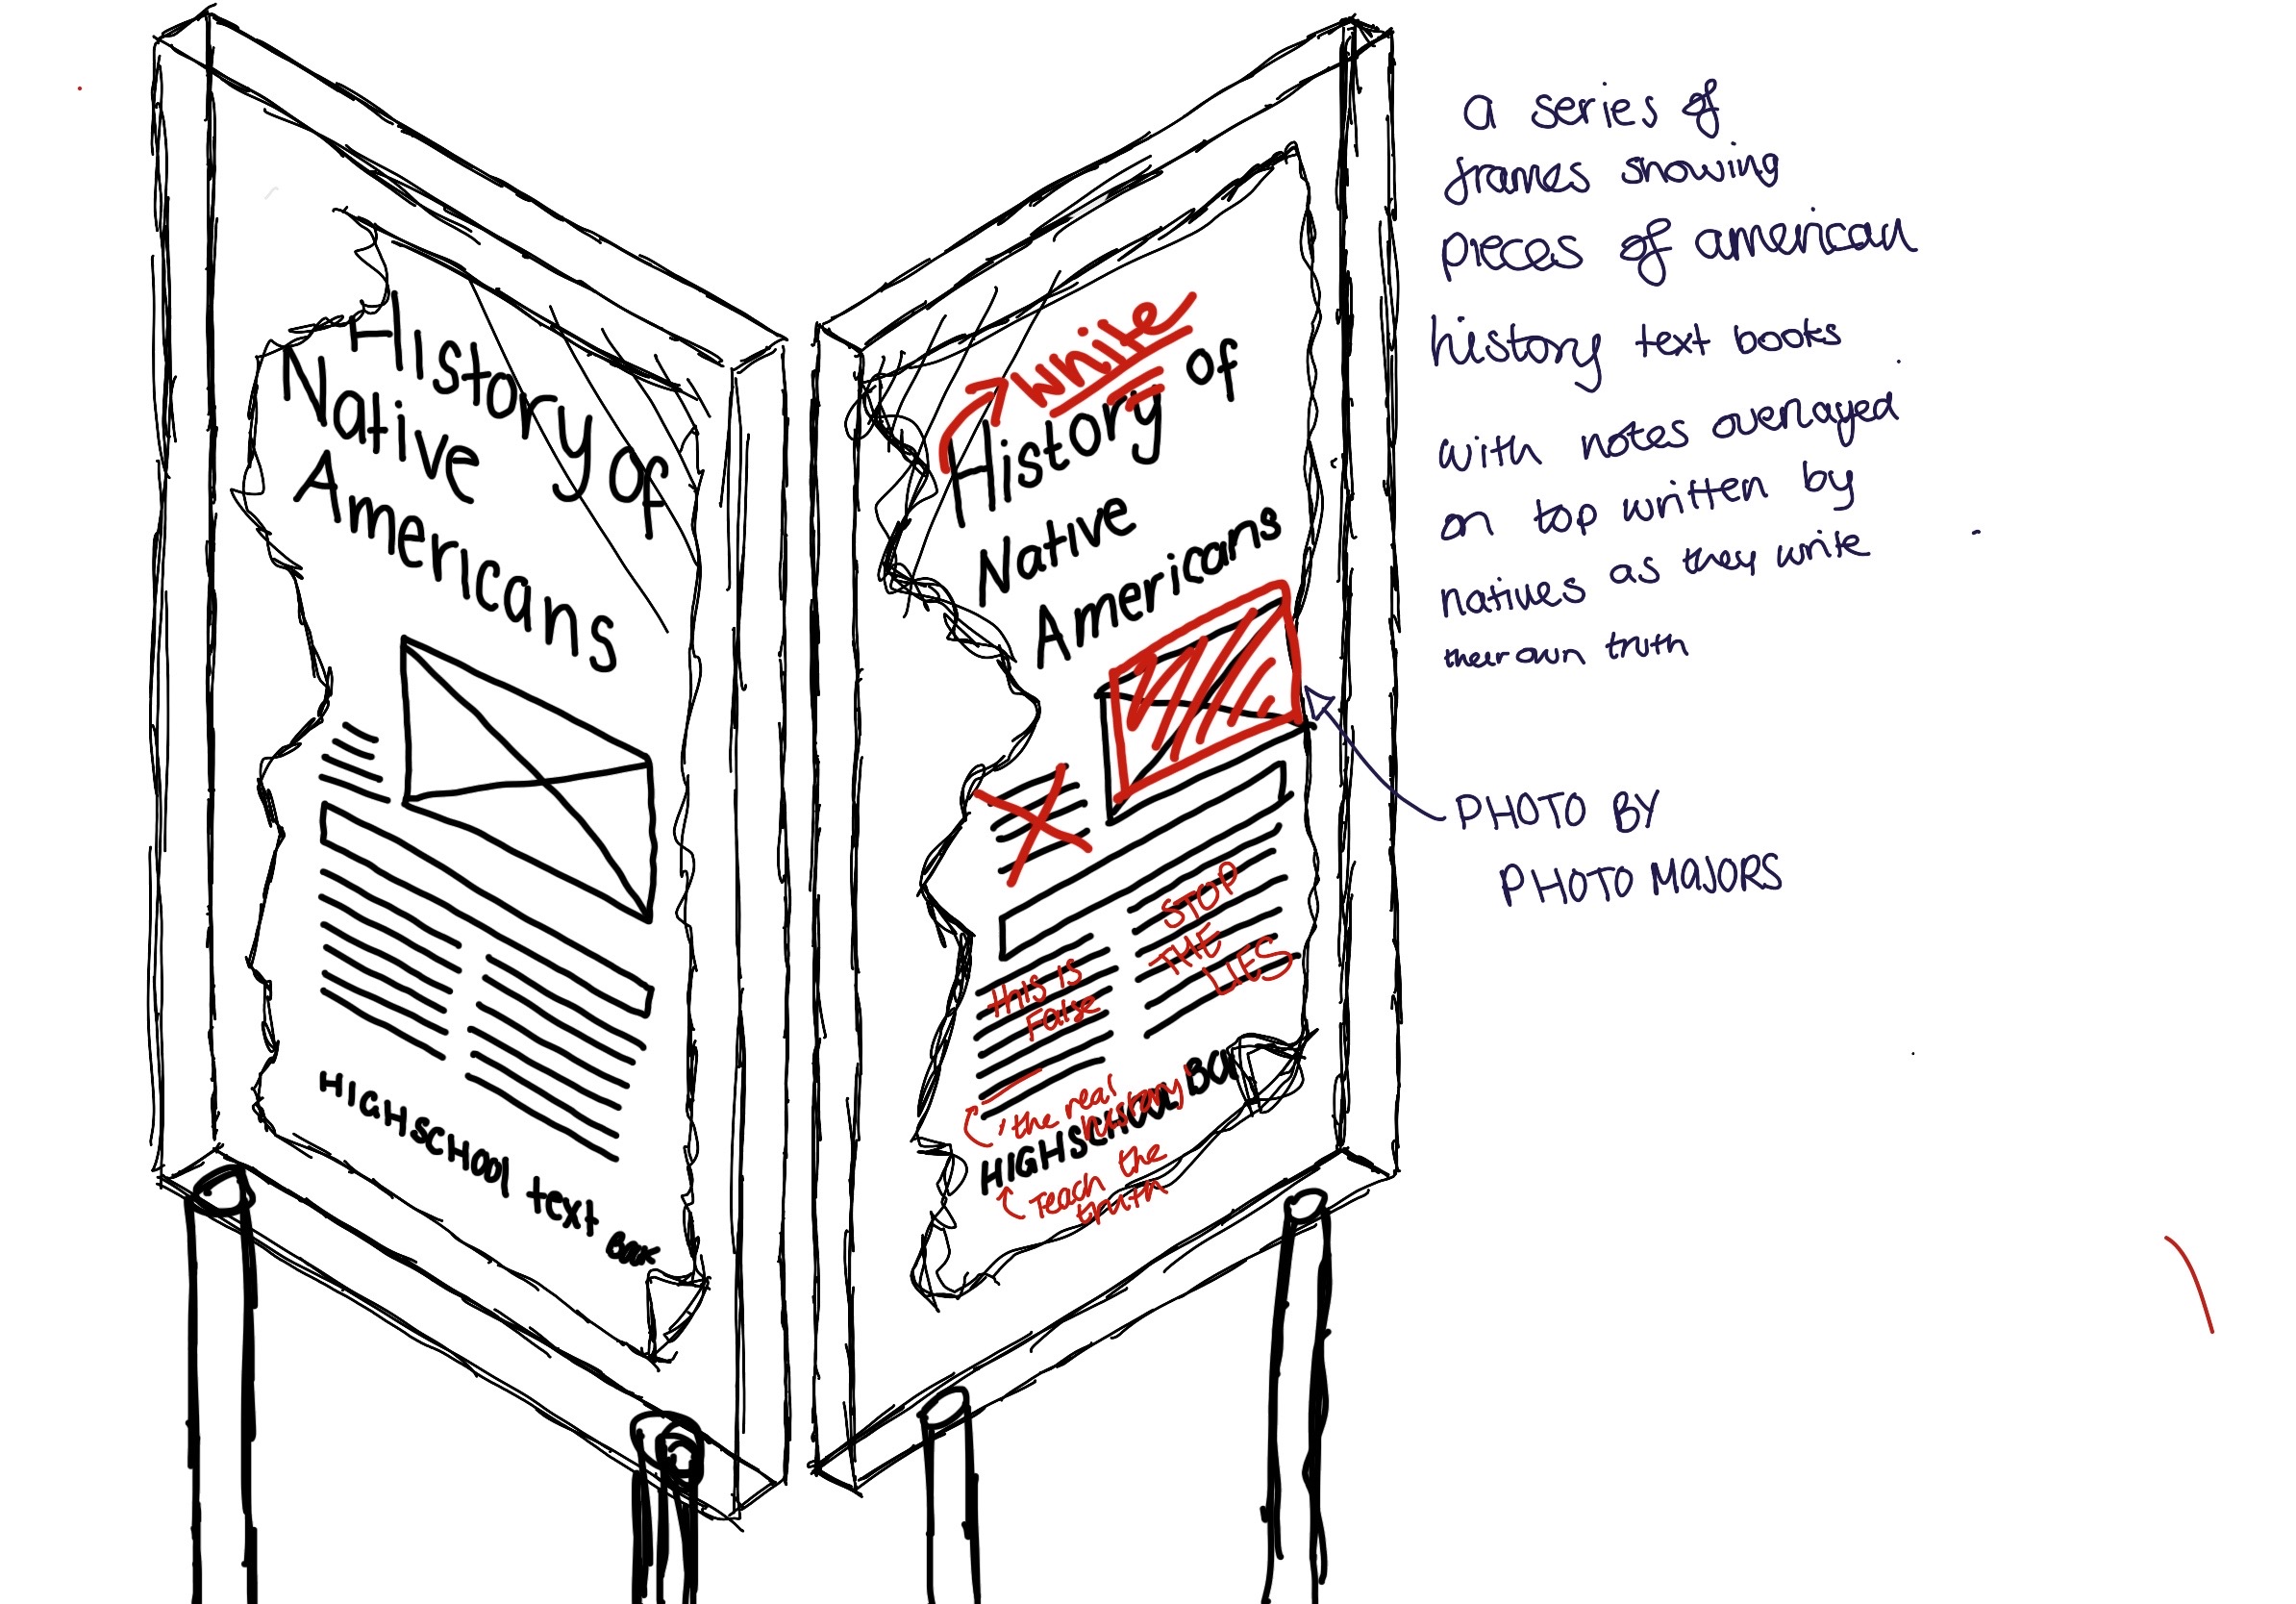 History of
Native
Americans
HIGHSCHOOL text BOOK
white
History of
Native
Americans
this is
False
STOP
THE
LIES
the real
history
HIGHSCHOOL BO
Teach the
truth
a series of
frames showing
pieces of american
history text books
with notes overlayed
on top written by
natives as they write
their own truth
PHOTO BY
PHOTO MAJORS